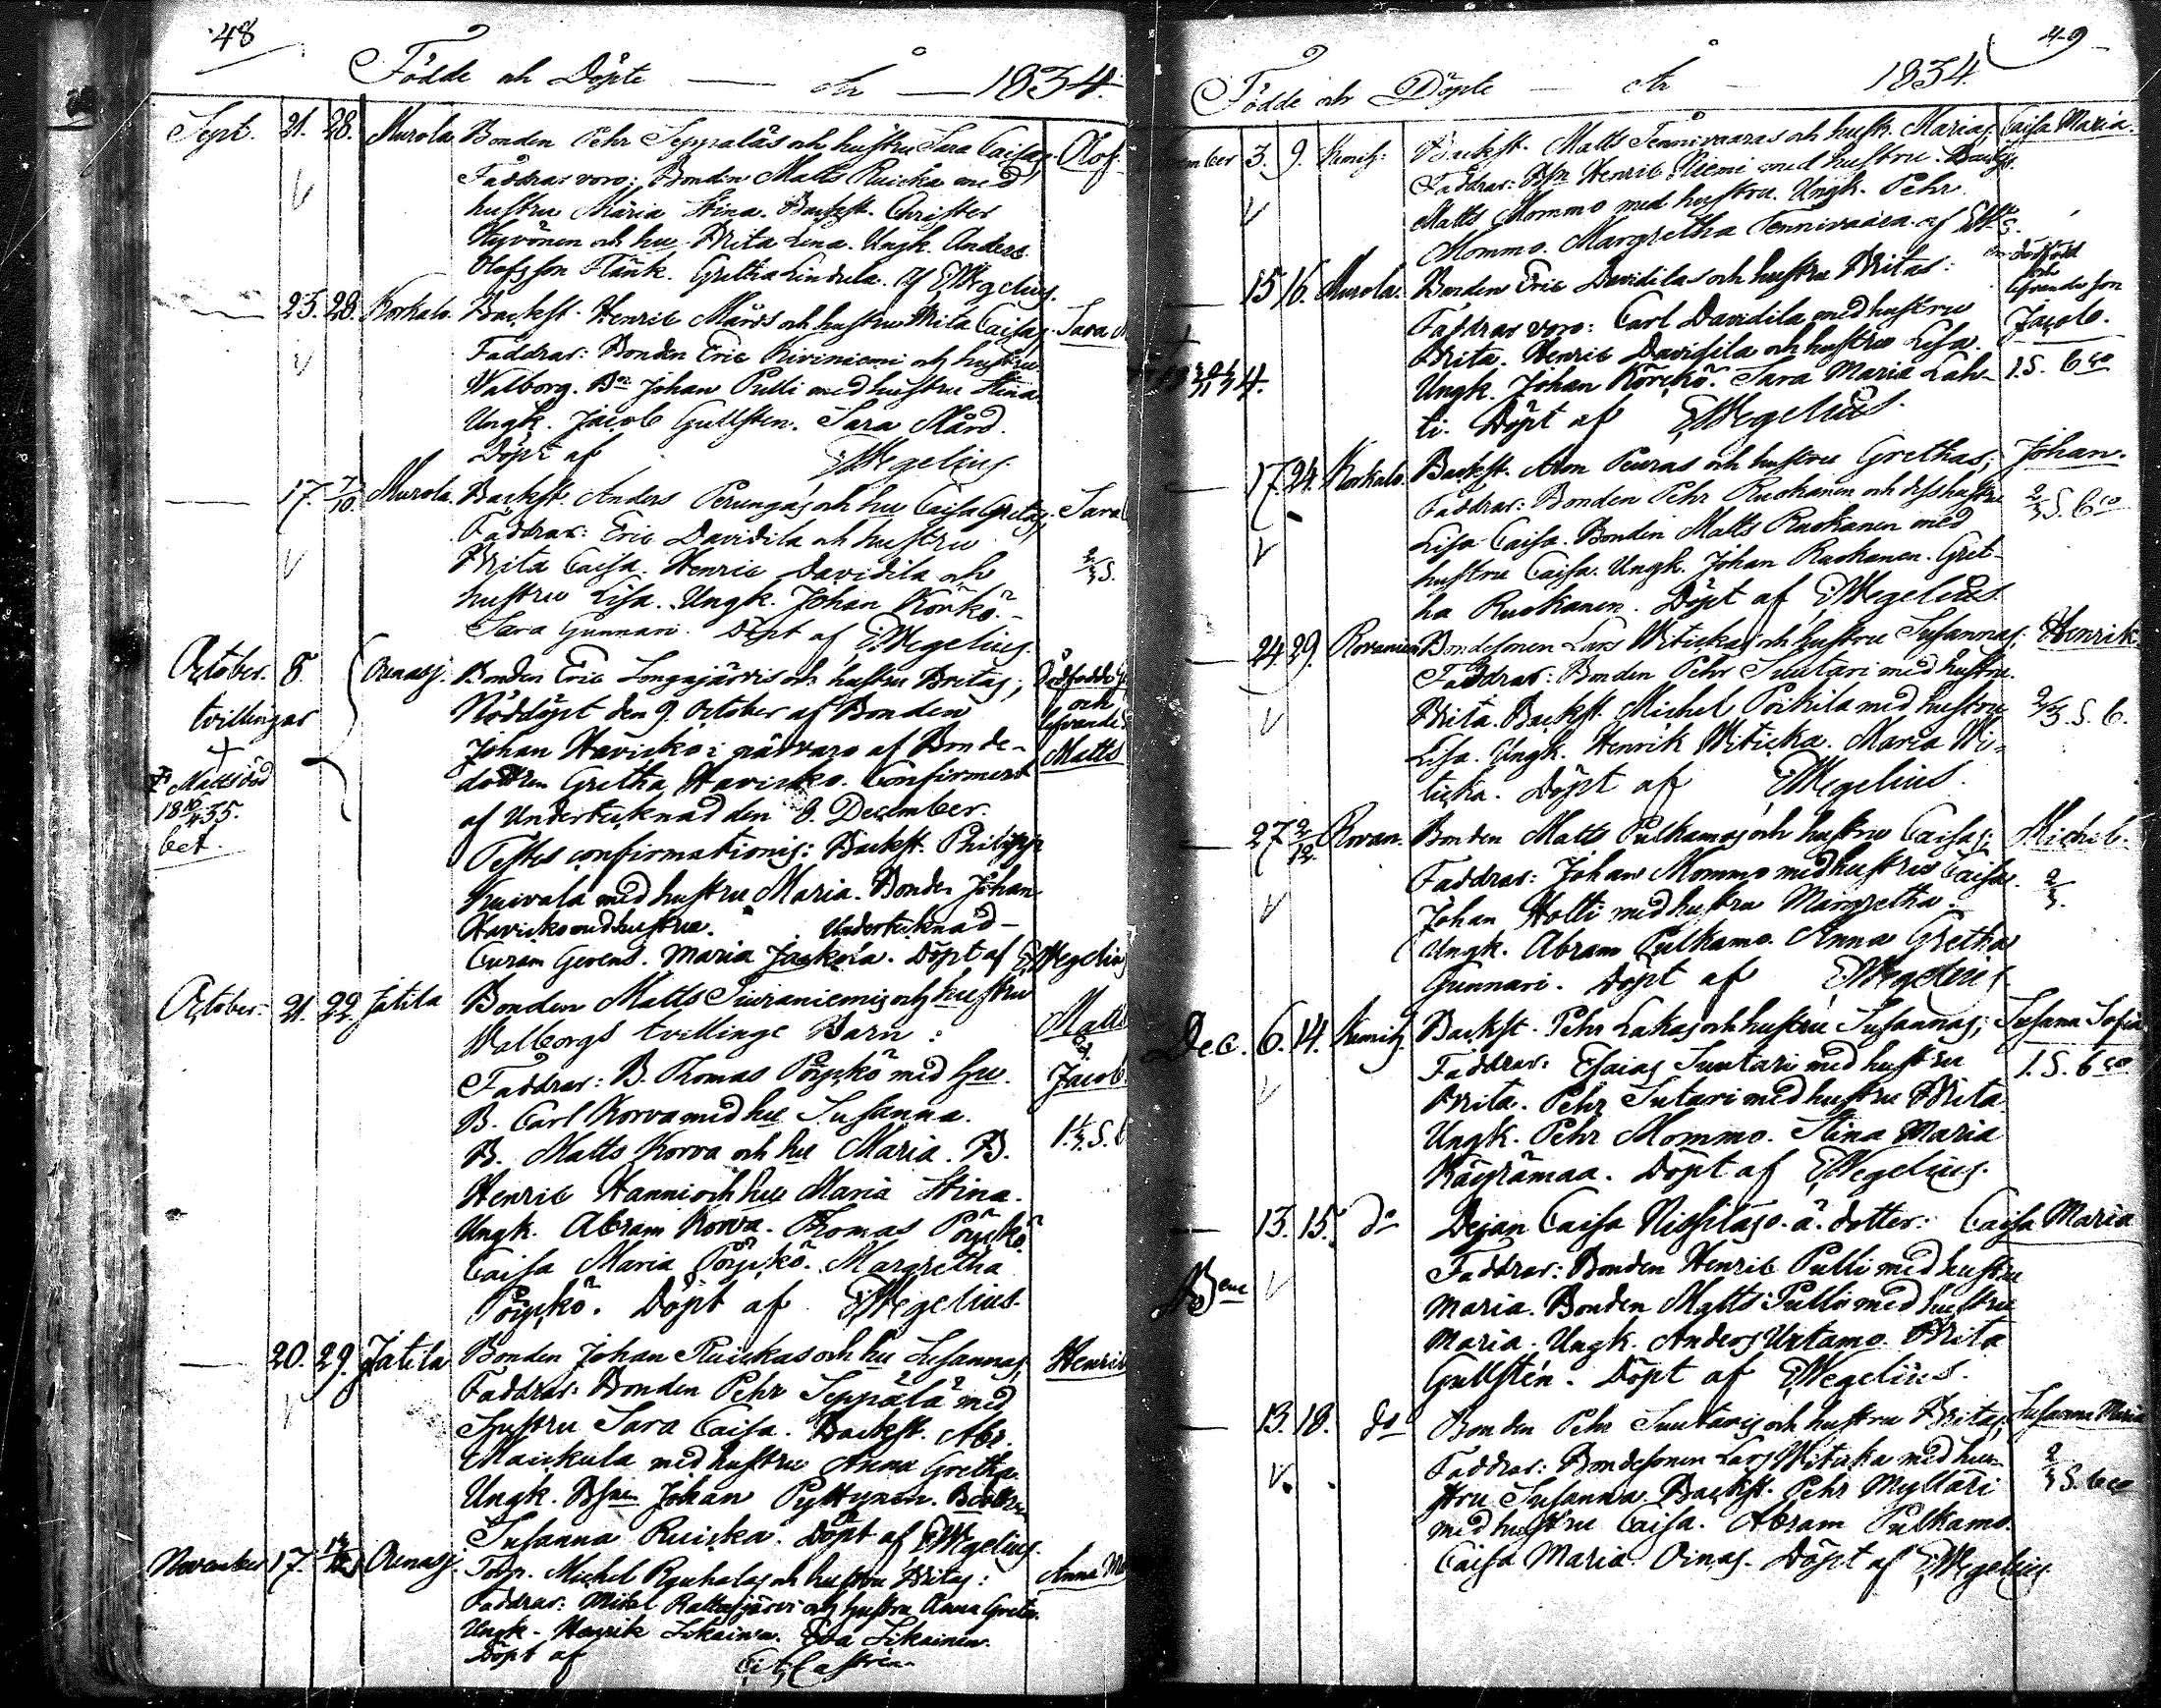 48
Födde och Döpte — År — 1834.
Sept. 21. 28. Murola. Bonden Pehr Seppäläs och hustru Sara Caisas; Olof.
Faddrar voro: Bonden Matts Ruicka med
hustru Maria Stina. Backst. Christer
Hyvönen och hu Brita Lena. Ungk. Anders
Olofsson Flänk. Gretha Lindula. Af EWegelius.
— 23. 28. Korkalo. Backst. Henric Mårds och hustru Brita Caisas; Sara
Faddrar: Bonden Eric Kiviniemi och hustru
Walborg. Bn Johan Pulli med hustru Stina.
Ungk. Jacob Gullsten. Sara Mård.
Döpt af EWegelius.
— 17. 7/10 Murola. Backst. Anders Perungas och hu Caisa Gretas; Sara
Faddrar: Eric Davidila och hustru
Brita Caisa. Henric Davidila och 2/3 S.
hustru Lisa. Ungk. Johan Körkö.
Sara Gunnari. Döpt af EWegelius.
October. 8. Oenasj. Bonden Eric Longajärvis och hustru Britas; Dödfödd
tvillingar Nöddöpt den 9. October af Bonden och
Johan Havisko i närvaro af Bonde- lefvande
dottren Gretha Havisko. Confirmerat Matts
Matts död af Undertecknad den 8. December.
18 16/4 35. Testes confirmationis: Backst. Philipp
bet. Kuivala med hustru Maria. Bonden Johan
Havisko med hustru. Undertecknad
Curam Gerens. Maria Jaakola. Döpt af EWegelius
October. 21. 22. Jatila Bonden Matts Siiraniemis och hustru
Walborgs tvillinge Barn: Matts
Faddrar: B. Thomas Pöyskö med hu. Jacob.
B. Carl Korva med hu Susanna.
B. Matts Korva och hu Maria. B. 1 1/3 S.
Henric Hanni och hu Maria Stina.
Ungk. Abram Korva. Thomas Pöyskö.
Caisa Maria Pöyskö. Margretha
Pöyskö. Döpt af EWegelius.
— 20. 29. Jatila Bonden Johan Ruickas och hu Susannas; Henric
Faddrar: Bonden Pehr Seppälä med
Hustru Sara Caisa. Backst. Abr.
Maickula med hustru Anna Gretha.
Ungk. Bsn Johan Pyttynen.
Susanna Ruicka. Döpt af EWegelius.
November 17. Oenasj. Torp. Michel Rouhalas och hustru Britas: Anna
Faddrar: Mickel Rattosjärvi och hustru Anna Greta.
Ungk. Henrik Sikainen. Eva Sikainen.
Döpt af Castrén
49
Födde och Döpte — År — 1834.
3. 9. Kemih: Backst. Matts Tennivaaras och hustr. Marias; Caisa Maria.
Faddrar: Bsn Henric Niemi med hustru. Backst.
Matts Mommo med hustru. Ungk. Pehr
Mommo. Margretha Tennivaara. af
— 15 16. Murola. Bonden Eric Davidilas och hustru Britas: en dödfödd
Faddrar voro: Carl Davidila med hustru lefvande son
Brita. Henric Davidila och hustru Lisa. Jacob.
Ungk. Johan Körckö. Sara Maria Lah- 1. S. 6 co
ti. Döpt af EWegelius.
— 17. 24. Korkalo. Backst. Aron Peuras och hustru Grethas; Johan.
Faddrar: Bonden Pehr Ruokanen och dess hustru 2/3 S. 6 co
Lisa Caisa. Bonden Matts Ruokanen med
hustru Caisa. Ungk. Johan Ruokanen. Gret-
ha Ruokanen. Döpt af EWegelius.
— 24 29. Rovaniemi Bondesonen Lars Witickas och hustru Susannas; Henrik
Faddrar: Bonden Pehr Suutari med hustru
Brita. Backst. Michel Poikila med hustru 2/3 S. 6.
Lisa. Ungk. Henrik Witicka. Maria Wi-
ticka. Döpt af EWegelius.
— 27 2/12. Rovan. Bonden Matts Pulkamos och hustru Caisas; Michel.
Faddrar: Johan Mommo med hustru Caisa. 2/3.
Johan Holti med hustru Margretha.
Ungk. Abram Pulkamo. Anna Gretha
Gunnari. Döpt af EWegelius
Dec. 6. 14. Kemih. Backst. Pehr Lakas och hustru Susannas; Susana Sofia
Faddrar: Esaias Suutari med hustru 1. S. 6 co.
Brita. Pehr Sutari med hustru Brita.
Ungk. Pehr Mommo. Stina Maria
Käyrämaa. Döpt af EWegelius.
— 13. 15. do Dejan Caisa Niskas o. ä. dotter: Caisa Maria
Faddrar: Bonden Henric Pulli med hustru
Maria. Bonden Matts Pulli med hustru
Maria. Ungk. Anders Urtamo. Brita
Gullstén. Döpt af EWegelius.
— 13. 18. do Bonden Pehr Suutaris och hustru Britas; Susanna Maria
Faddrar: Bondesonen Lars Witicka med hu-
stru Susanna. Backst. Pehr Myllari 2/3 S. 6 co
med hustru Caisa. Abram Pulkamo.
Caisa Maria Oinas. Döpt af EWegelius